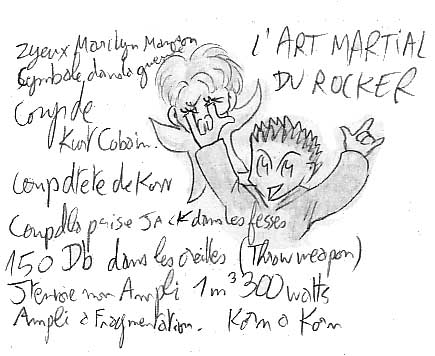 zyeux Marilyn Manson
Cymbale dans la gueule
Coup de
Kurt Cobain.
Coup d'tete de Korn
Coup d'la prise JACK dans les fesses
150 Db dans les oreilles (Throw weapon)
J't'envoie mon Ampli 1m³ 300 watts
Ampli a Fragmentation. Korn o Korn
L'ART MARTIAL
DU ROCKER